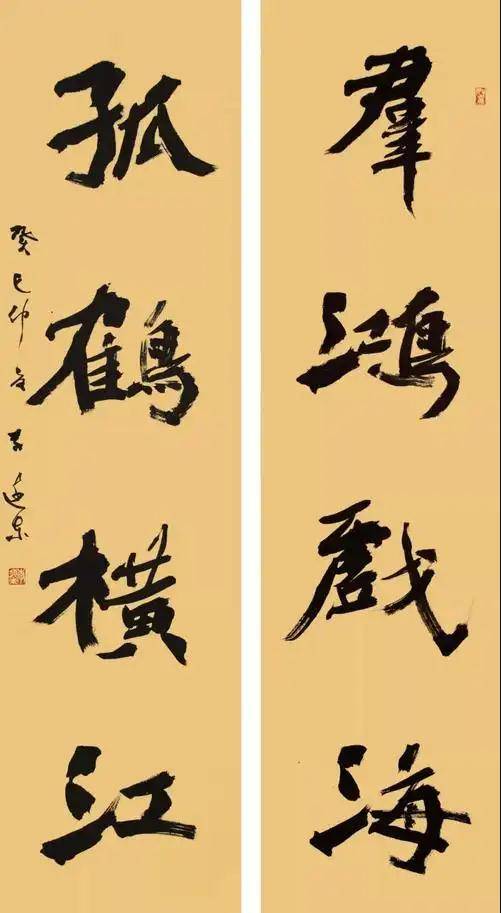 羣鴻戲海
孤鶴橫江
癸巳仲夏李遠東